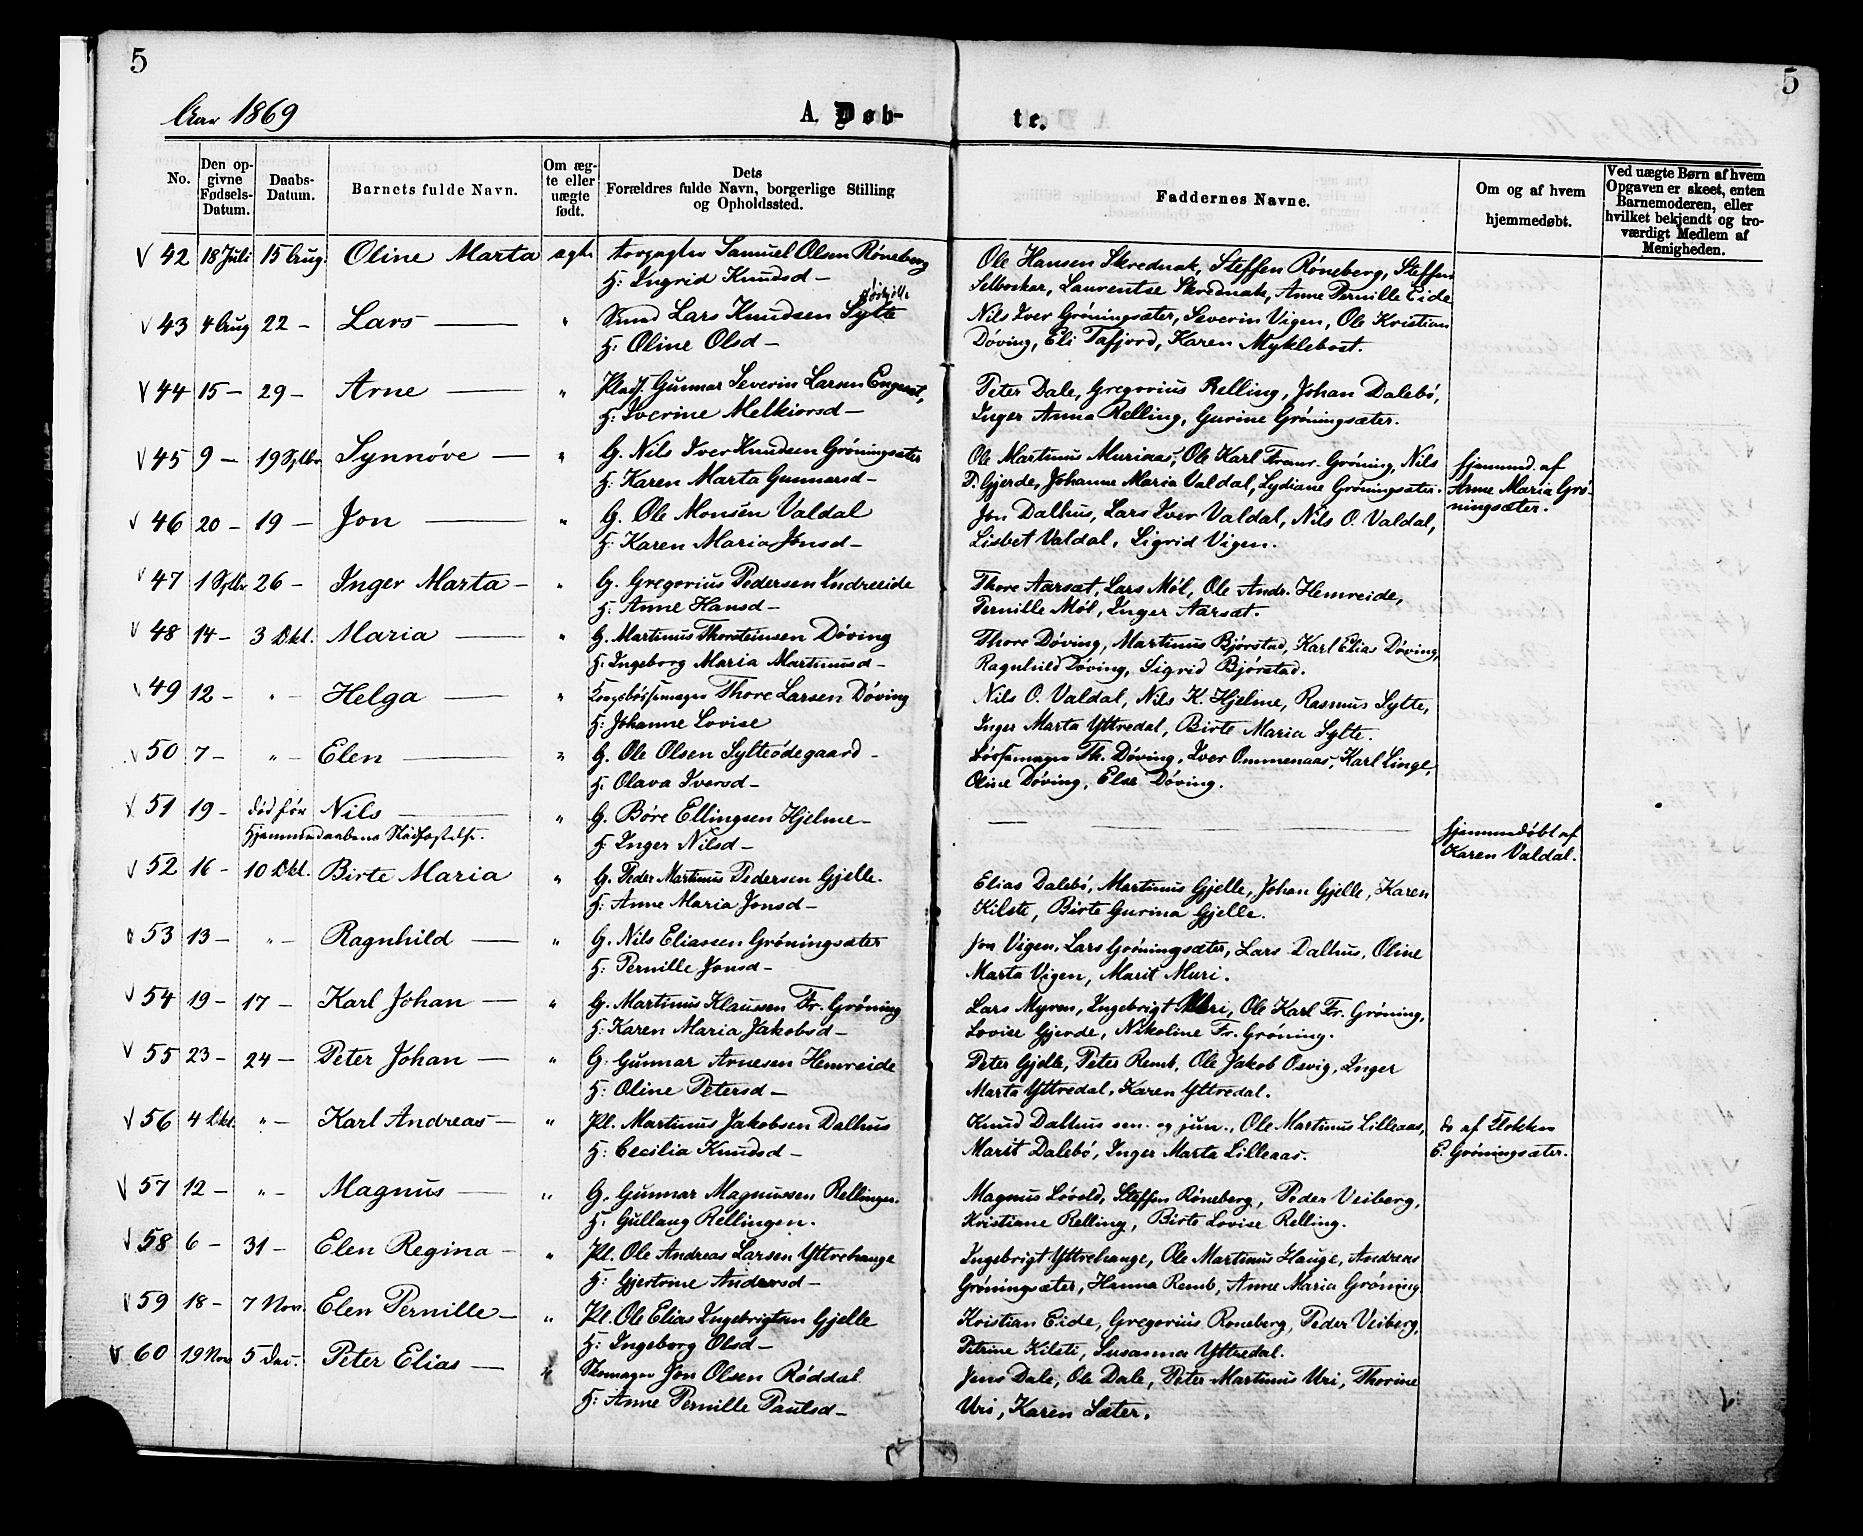 5
5
Aar 1869
A. Døb-
te.
No.
Den op-
givne
Fødsels-
Datum.
Daabs-
Datum.
Barnets fulde Navn.
Om æg-
te eller
uægte
født.
Dets
Forældres fulde Navn, borgerlige Stilling
og Opholdssted.
Faddernes Navne.
Om og af hvem
hjemmedøbt.
Ved uægte Børn af hvem
Opgaven er skeet, enten
Barnemoderen, eller
hvilket bekjendt og tro-
værdigt Medlem af
Menigheden.
√ 42 18 Juli 15 Aug. Oline Marta ægte Samuel Olsen Røneberg
H: Ingrid Knudsd –
Ole Hansen Skrednak, Steffen Røneberg, Steffen
Selboskar, Laurentse Skrednak, Anne Pernille Eide
√ 43 4 Aug 22 – Lars — " Lars Knudsen Sylte
H: Oline Olsd –
Nils Iver Grøningsæter, Severin Vigen, Ole Kristian
Døving, Eli Tafjord, Karen Myklebost.
√ 44 15 – 29 – Arne — " Gunnar Severin Larsen Engeset,
H: Iverine Melkiorsd –
Peter Dale, Gregorius Relling, Johan Dalebø,
Inger Anna Relling, Gurine Grøningsæter.
√ 45 9 – 19 Sptbr Synnøve — " G. Nils Iver Knudsen Grøningsæter
H: Karen Marta Gunnarsd –
Ole Martinus Muriaas, Ole Karl Fremr. Grøning, Nils
P. Gjerde, Johanne Maria Valdal, Lydiane Grøningsæter.
hjemmed. af
Anne Maria Grø-
ningsæter.
√ 46 20 – 19 – Jon — " G. Ole Monsen Valdal
H: Karen Maria Jonsd –
Jon Dalhus, Lars Iver Valdal, Nils O. Valdal,
Lisbet Valdal, Sigrid Vigen.
√ 47 1 Sptbr 26 – Inger Marta – " G. Gregorius Pedersen Indreeide
H: Anne Hansd –
Thore Aarsæt, Lars Møl, Ole Andr. Hemreide,
Pernille Møl, Inger Aarsæt.
√ 48 14 – 3 Okt. Maria — " G. Martinus Thorsteinsen Døving
H: Ingeborg Maria Martinusd –
Thore Døving, Martinus Bjørstad, Karl Elias Døving,
Ragnhild Døving, Sigrid Bjørstad.
√ 49 12 – " – Helga — " Thore Larsen Døving
H: Johanne Lovise
Nils O. Valdal, Nils K. Hjelme, Rasmus Sylte,
Inger Marta Yttredal, Birte Maria Sylte.
√ 50 7 – " – Elen — " G. Ole Olsen Sylteødegaard –
H: Olava Iversd –
Bøssemager Th. Døving, Iver Ommenaas, Karl Linge,
Oline Døving, Else Døving.
√ 51 19 – død før Nils — " G. Børe Ellingsen Hjelme –
Hjemmedaabens Stadfæstelse. H: Inger Nilsd –
hjemmedøbt af
Karen Valdal.
√ 52 16 – 10 Okt. Birte Maria " G. Peder Martinus Pedersen Gjelle.
H: Anne Maria Jonsd –
Elias Dalebø, Martinus Gjelle, Johan Gjelle, Karen
Kilste, Birte Gurina Gjelle.
53 13 – " – Ragnhild — " G. Nils Eliassen Grøningsæter
H: Pernille Jonsd –
Jon Vigen, Lars Grøningsæter, Lars Dalhus, Oline
Marta Vigen, Marit Muri.
√ 54 19 – 17 – Karl Johan — " G. Martinus Klaussen Fr. Grøning
H: Karen Maria Jakobsd –
Lars Myren, Ingebrigt Muri, Ole Karl Fr. Grøning,
Lovise Gjerde, Nikoline Fr. Grøning.
√ 55 23 – 24 – Peter Johan — " G. Gunnar Arnesen Hemreide
H: Oline Petersd –
Peter Gjelle, Peter Remb, Ole Jakob Osvig, Inger
Marta Yttredal, Karen Yttredal.
√ 56 4 Okt. " – Karl Andreas – " Pl. Martinus Jakobsen Dalhus
H: Cecilia Knudsd –
Knud Dalhus sen. og jun., Ole Martinus Lilleaas,
Marit Dalebø, Inger Marta Lilleaas.
do af Klokker
E. Grøningsæter.
√ 57 12 – " – Magnus — " G. Gunnar Magnussen Rellingen.
H: Gullaug Rellingen.
Magnus Løvold, Steffen Røneberg, Peder Veiberg,
Kristiane Relling, Birte Lovise Relling.
√ 58 6 – 31 – Elen Regina – " Pl. Ole Andreas Larsen Yttrehauge
H: Gjertrine Andersd –
Ingebrigt Yttrehauge, Ole Martinus Hauge, Andreas
Grøningsæter, Hanna Remb, Anne Maria Grøning
√ 59 18 – 7 Nov. Elen Pernille – " Pl. Ole Elias Ingebrigtsen Gjelle
H: Ingeborg Olsd –
Kristian Eide, Gregorius Roneberg, Peder Veiberg,
Petrine Kilsti, Susanna Yttredal.
√ 60 19 Nov 5 Dec. Peter Elias — " Skomager Jon Olsen Røddal
H: Anne Pernille Paulsd –
Jens Dale, Ole Dale, Peter Martinus Uri, Thorine
Uri, Karen Sæter.